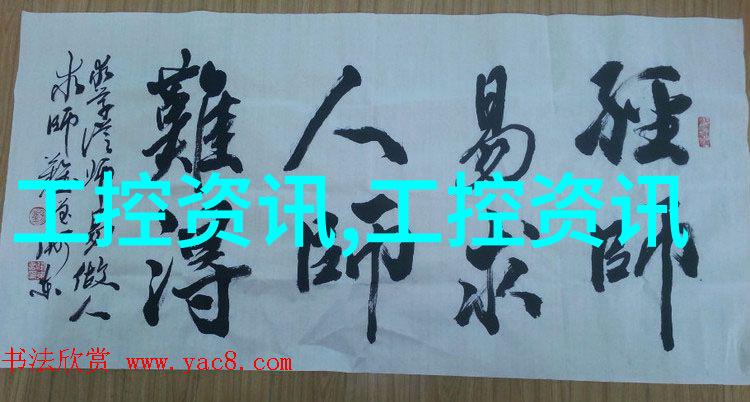 經師
易求
人師
難得
做人
求師
工控资讯,工控资讯
书法欣赏 www.yac8.com